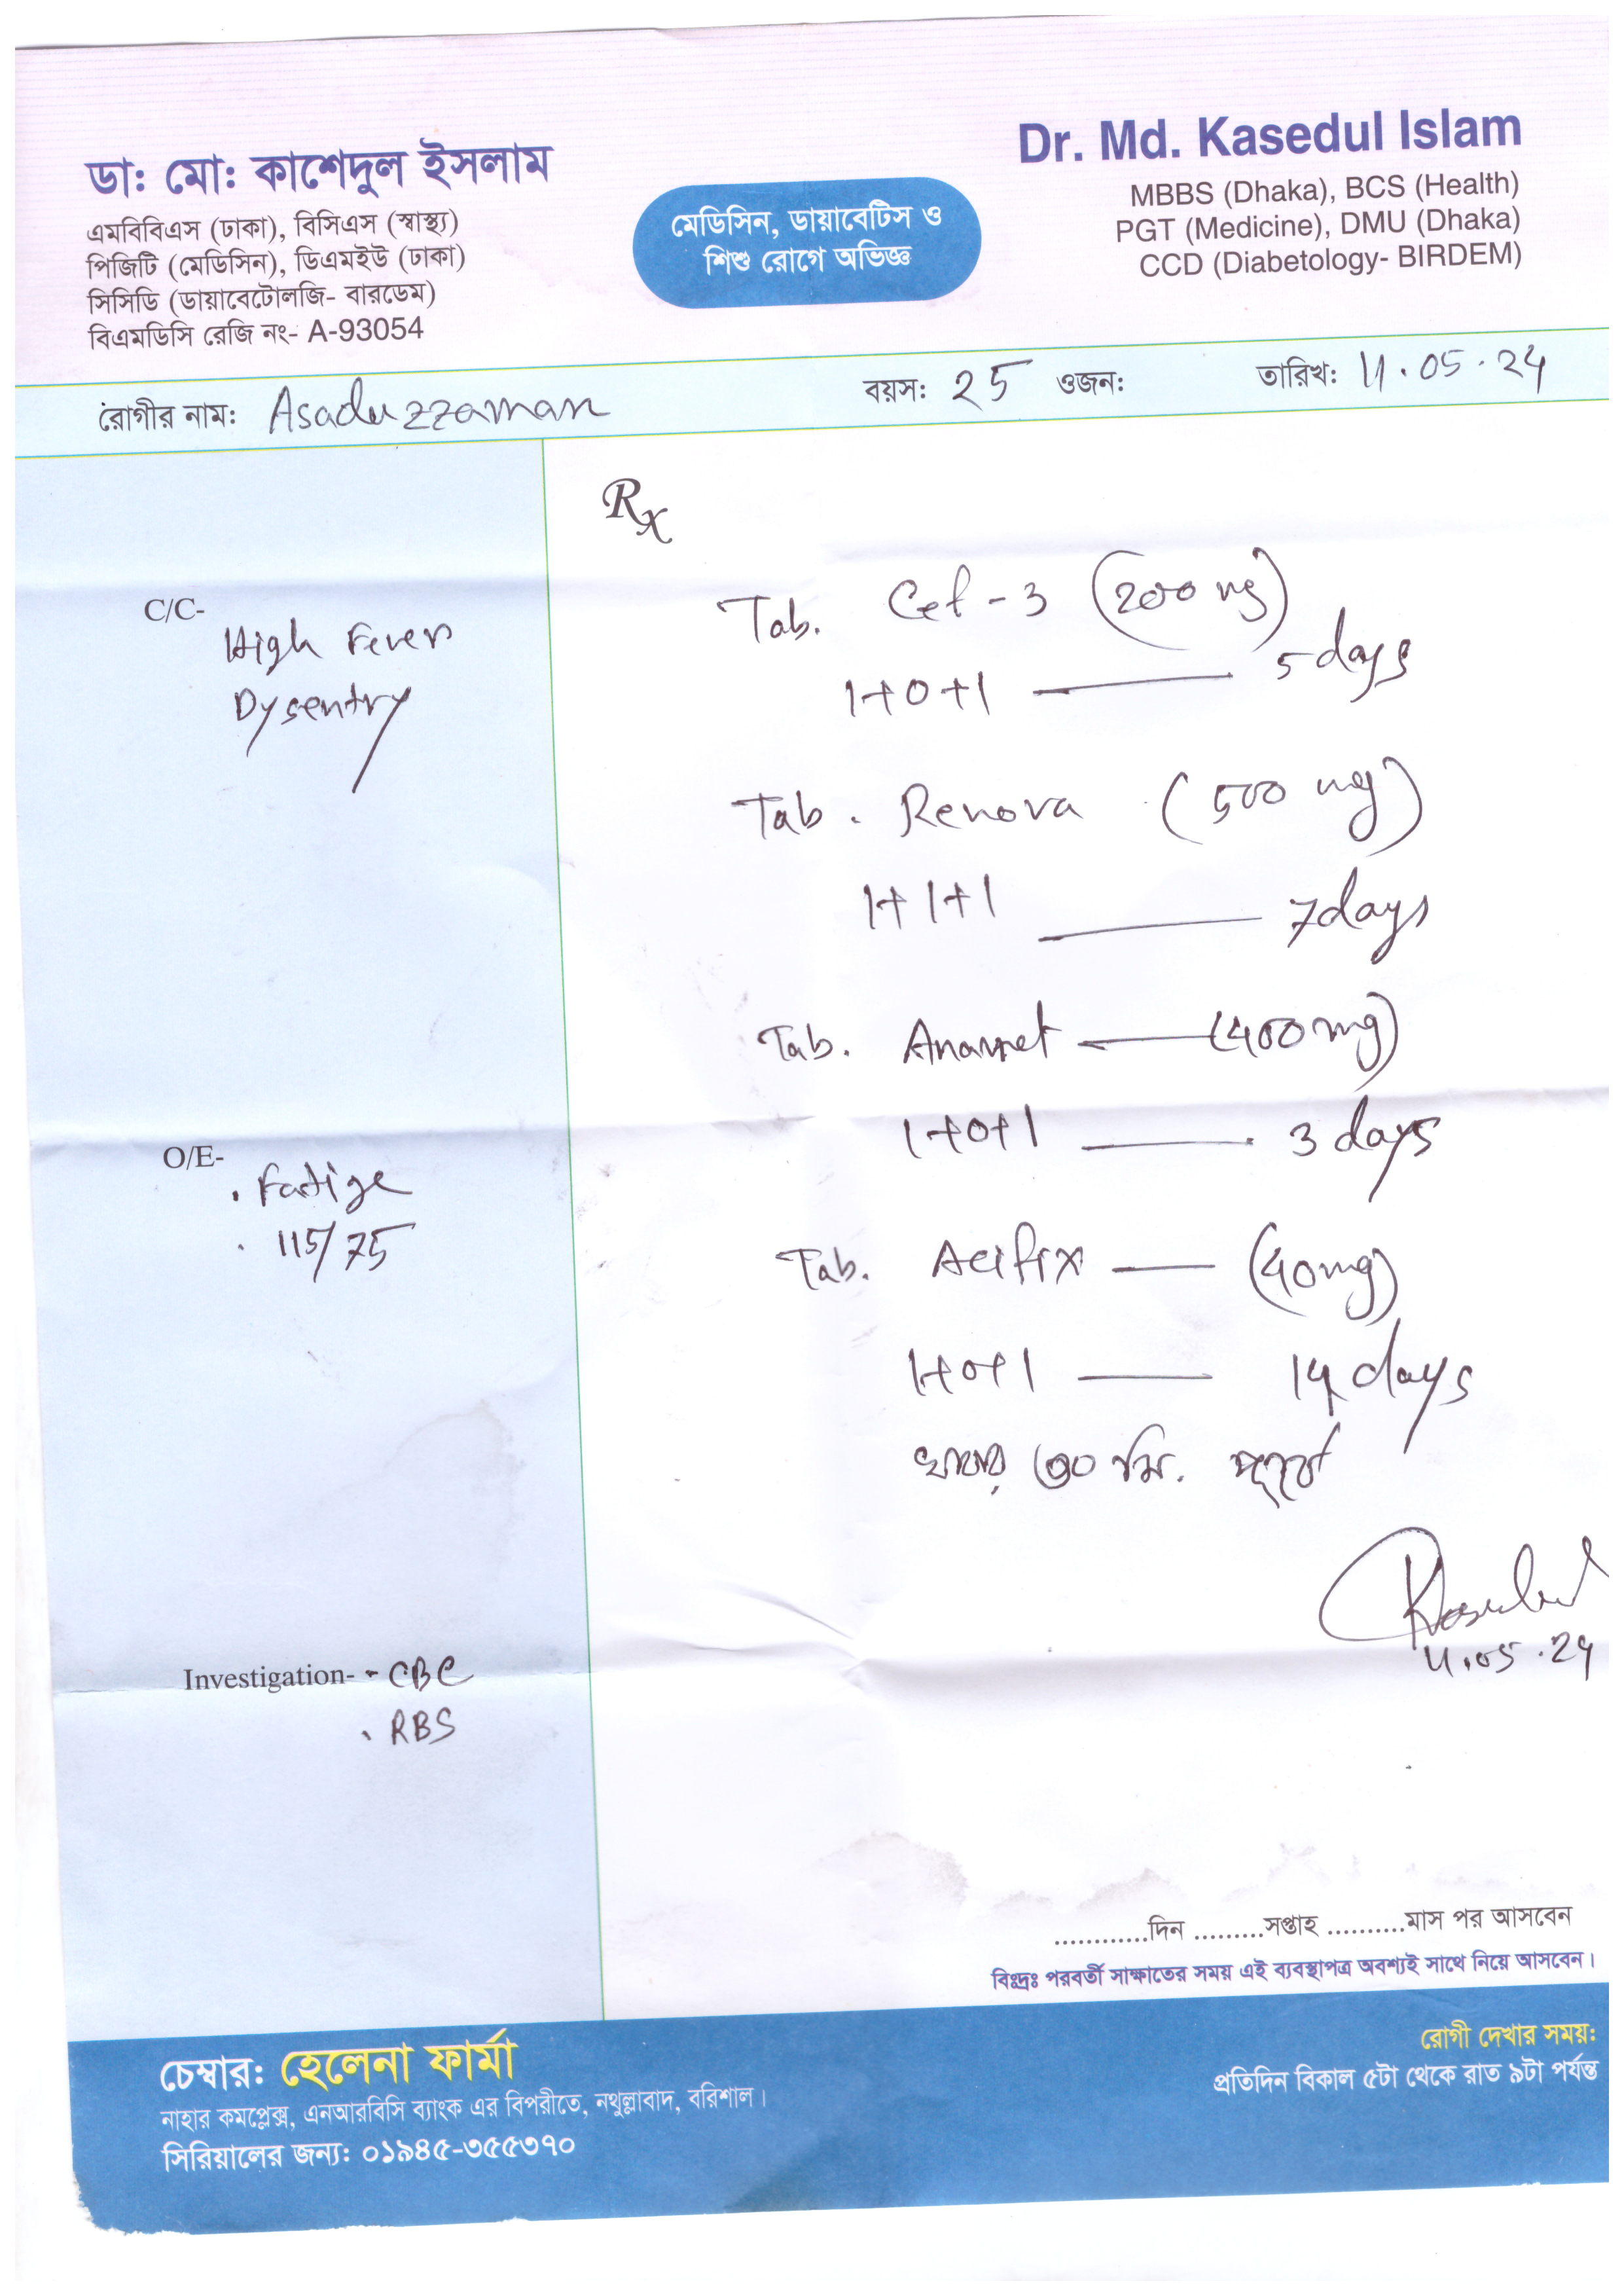 ডা: মো: কাশেদুল ইসলাম
এমবিবিএস (ঢাকা), বিসিএস (স্বাস্থ্য)
পিজিটি (মেডিসিন), ডিএমইউ (ঢাকা)
সিসিডি (ডায়াবেটোলজি- বারডেম)
বিএমডিসি রেজি নং- A-93054
মেডিসিন, ডায়াবেটিস ও
শিশু রোগে অভিজ্ঞ
Dr. Md. Kasedul Islam
MBBS (Dhaka), BCS (Health)
PGT (Medicine), DMU (Dhaka)
CCD (Diabetology- BIRDEM)
রোগীর নাম: Asaduzzaman বয়স: 25 ওজন: তারিখ: 11.05.24
C/C-
High Fever
Dysentry
O/E-
. Fatige
. 115/75
Investigation- - CBC
. RBS
Rx
Tab. Cef-3 (200 mg)
1+0+1 — 5 days
Tab. Renova (500 mg)
1+1+1 — 7 days
Tab. — (400 mg)
1+0+1 — 3 days
Tab. Acifix — (40 mg)
1+0+1 — 14 days
খাবার ৩০ মি. পূর্বে
Kasedul
11.05.24
............দিন .........সপ্তাহ ..........মাস পর আসবেন
বিঃদ্রঃ পরবর্তী সাক্ষাতের সময় এই ব্যবস্থাপত্র অবশ্যই সাথে নিয়ে আসবেন।
চেম্বার: হেলেনা ফার্মা
নাহার কমপ্লেক্স, এনআরবিসি ব্যাংক এর বিপরীতে, নথুল্লাবাদ, বরিশাল।
সিরিয়ালের জন্য: ০১৯৪৫-৩৫৫৩৭০
রোগী দেখার সময়:
প্রতিদিন বিকাল ৫টা থেকে রাত ৯টা পর্যন্ত